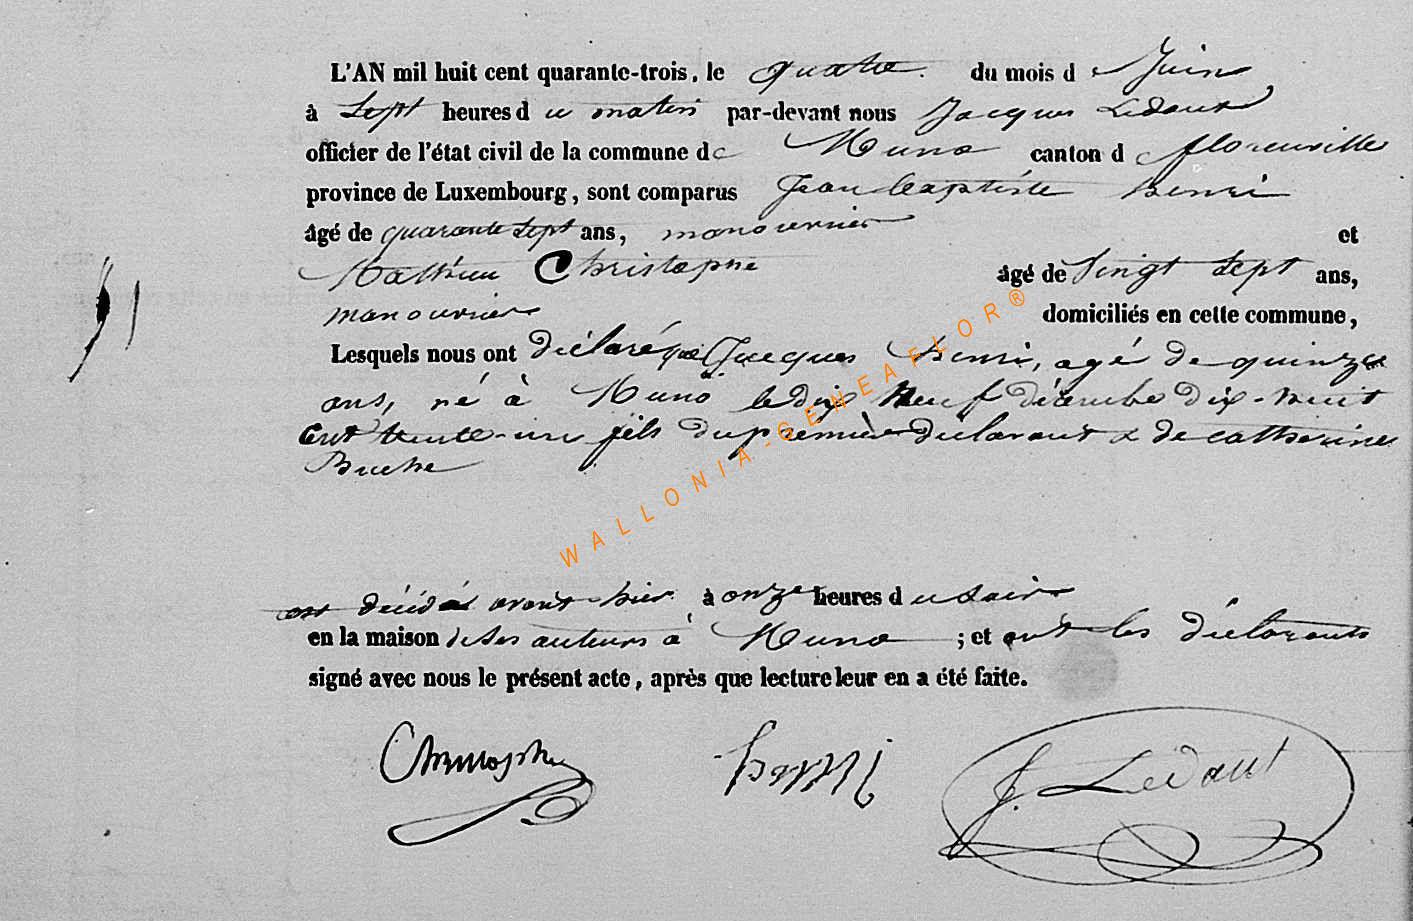 L'AN mil huit cent quarante-trois, le quatre du mois de Juin
à Sept heures du matin par-devant nous Jacques Ledant
officier de l'état civil de la commune de Muno canton de florenville
province de Luxembourg, sont comparus Jean Baptiste Henri
âgé de quarante Sept ans, manouvrier et
Mathieu Christophe âgé de Vingt Sept ans,
manouvrier domiciliés en cette commune,
Lesquels nous ont déclaré que Jacques Henri, agé de quinze
ans, né à Muno le dix Neuf décembre dix-huit
Cent trente-un fils du premier déclarant & de catherine
est décédé avant hier à onze heures du Soir
en la maison de Ses auteurs à Muno ; et ont les déclarants
signé avec nous le présent acte, après que lecture leur en a été faite.
Christophe Henri J. Ledant
WALLONIA-GENEAFLOR®